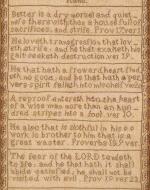 Friend
Better is a dry morsel and quiet
ness therewith than a house full of
sacrifices and strife. Prov 17. ver 1
He loveth transgression that lov
eth strife and he that exalteth his
gate seeketh destruction ver 19.
He that hath a froward heart find
eth no good and he that hath a per
verse spirit falleth into mischief ver 20
A reproof entereth into the heart
of a wise man more than an hun
dred stripes into a fool. ver 10.
He also that is slothful in his
work is brother to him that is a
great waster. Proverbs 18 ver
The fear of the LORD tendeth
to life and he that hath it shall
abide satisfied; he shall not be
visited with evil. Prov 19 ver 23